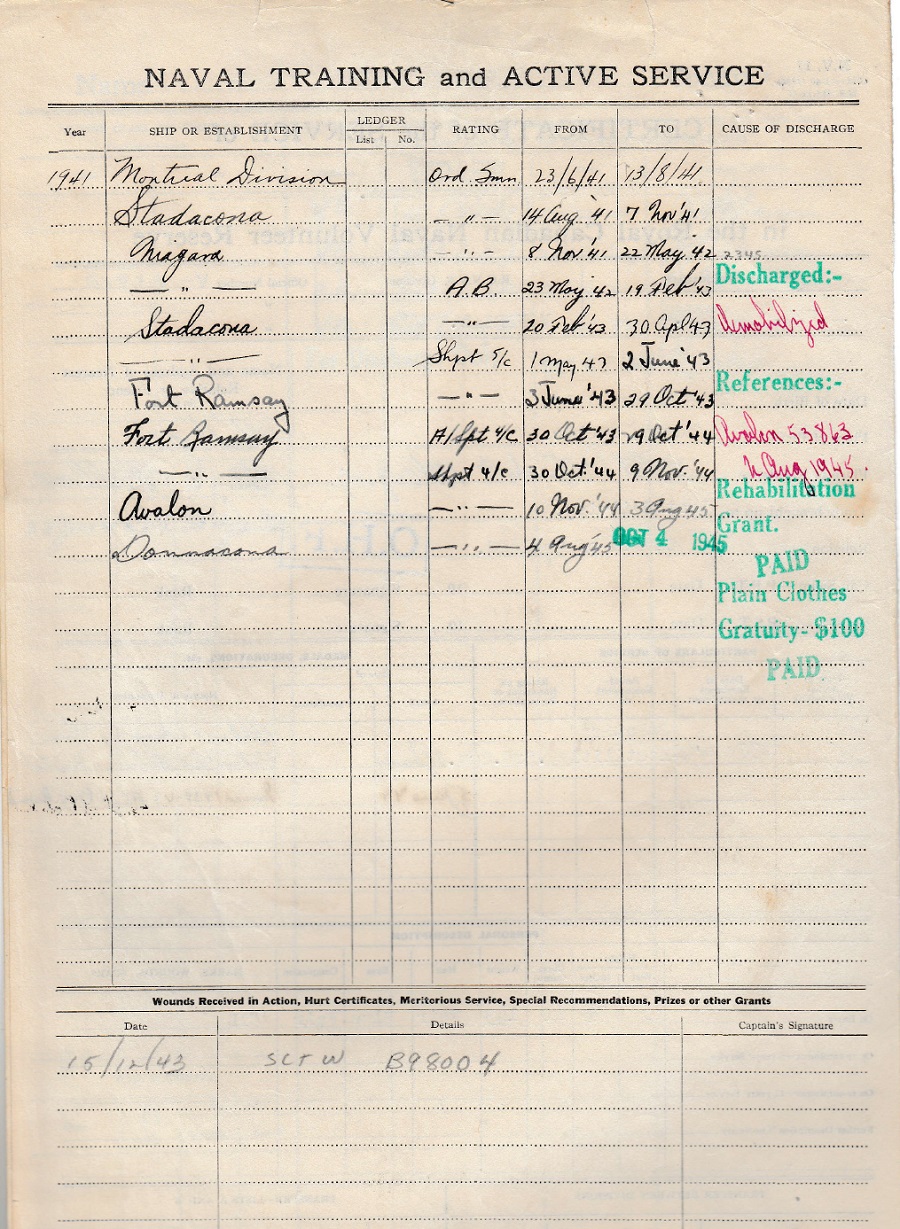 NAVAL TRAINING and ACTIVE SERVICE
Year SHIP OR ESTABLISHMENT LEDGER List No. RATING FROM TO CAUSE OF DISCHARGE
1941 Montreal Division Ord. Smn 23/6/41 13/8/41
Stadacona — " — 14 Aug '41 7 Nov '41
Niagara — " — 8 Nov '41 22 May 42 2345
Discharged:-
— " — A.B. 23 May 42 19 Feb '43
Stadacona — " — 20 Feb '43 30 Apl 43 demobilized
— " — Shpt 5/c 1 May 43 2 June '43
References:-
Fort Ramsay — " — 3 June '43 29 Oct '43
Fort Ramsay A/Spt 4/c 30 Oct '43 29 Oct '44 Avalon 53863
— " — Shpt 4/c 30 Oct. '44 9 Nov. '44 2 Aug 1945.
Rehabilitation
Avalon — " — 10 Nov. '44 3 Aug 45
Grant.
Donnacona — " — 4 Aug '45 OCT 4 1945
PAID
Plain Clothes
Gratuity- $100
PAID
Wounds Received in Action, Hurt Certificates, Meritorious Service, Special Recommendations, Prizes or other Grants
Date Details Captain's Signature
15/12/43 B98004